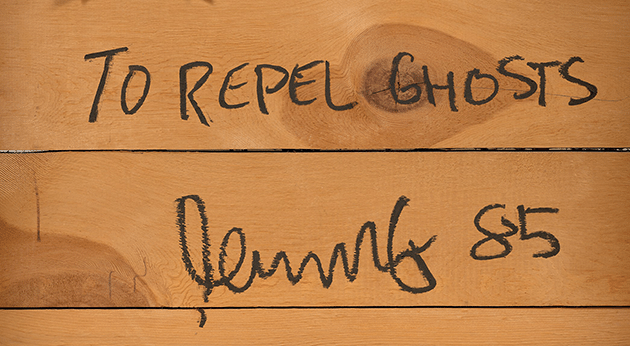 TO REPEL GHOSTS
85